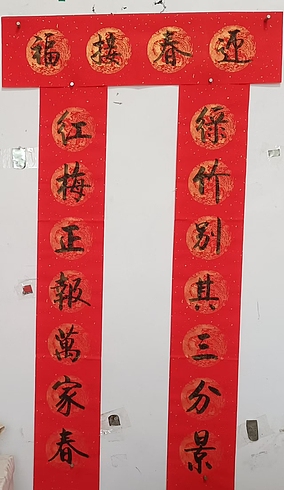 迎春接福
綠竹別其三分景
紅梅正報萬家春